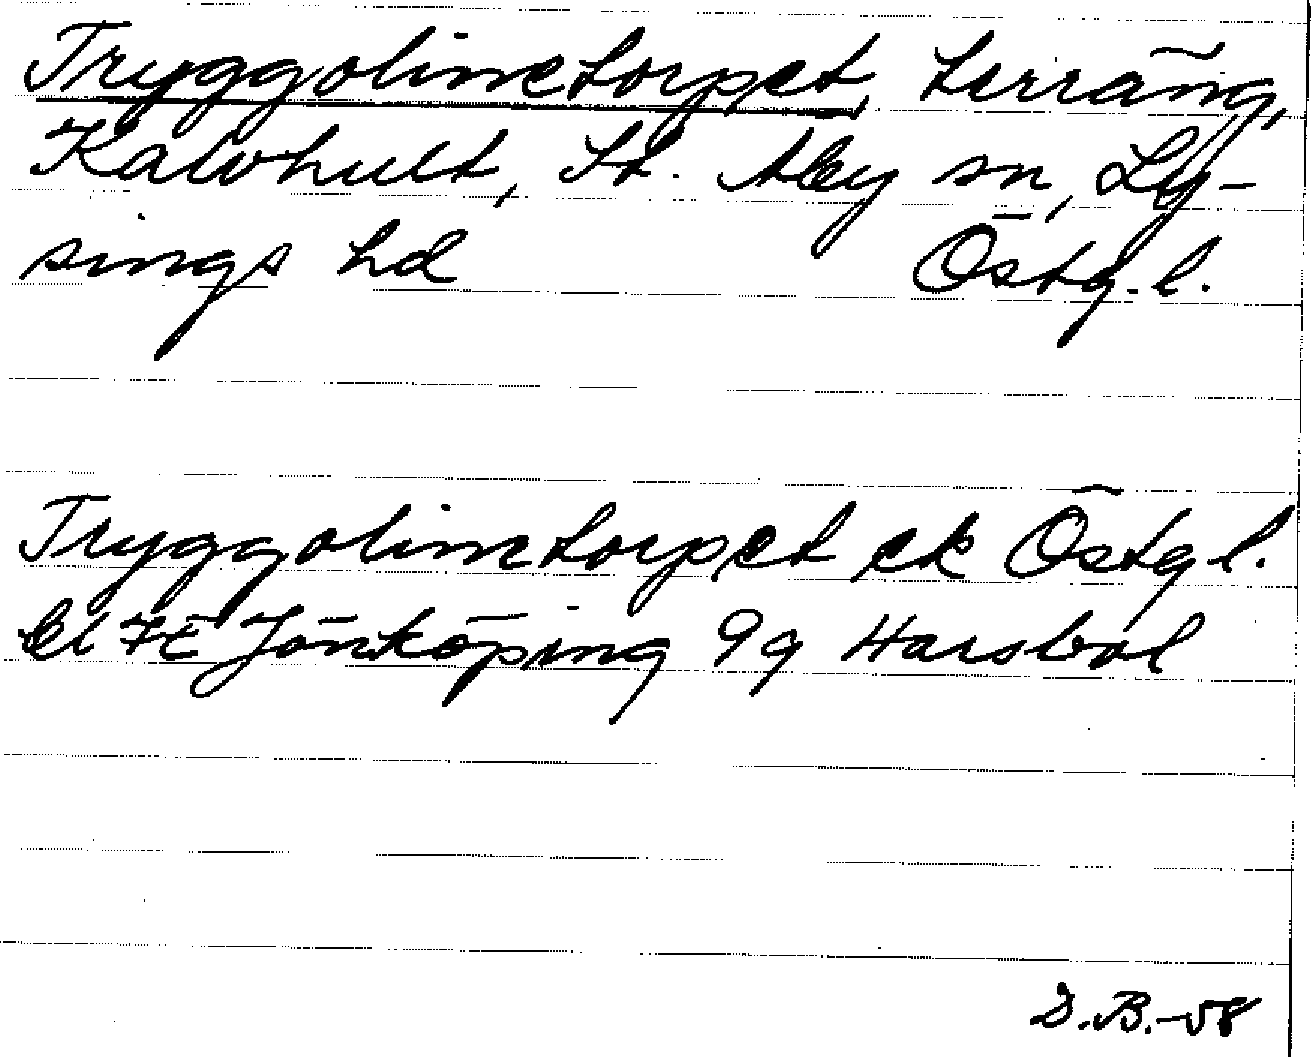 Tryggolinetorpet, terräng,
Kalvhult, St. Åby sn, Ly-
sings hd Östg. l.
Tryggolinetorpet ek Östg l.
bl 7E Jönköping 9g Harsbol
D.B.-58